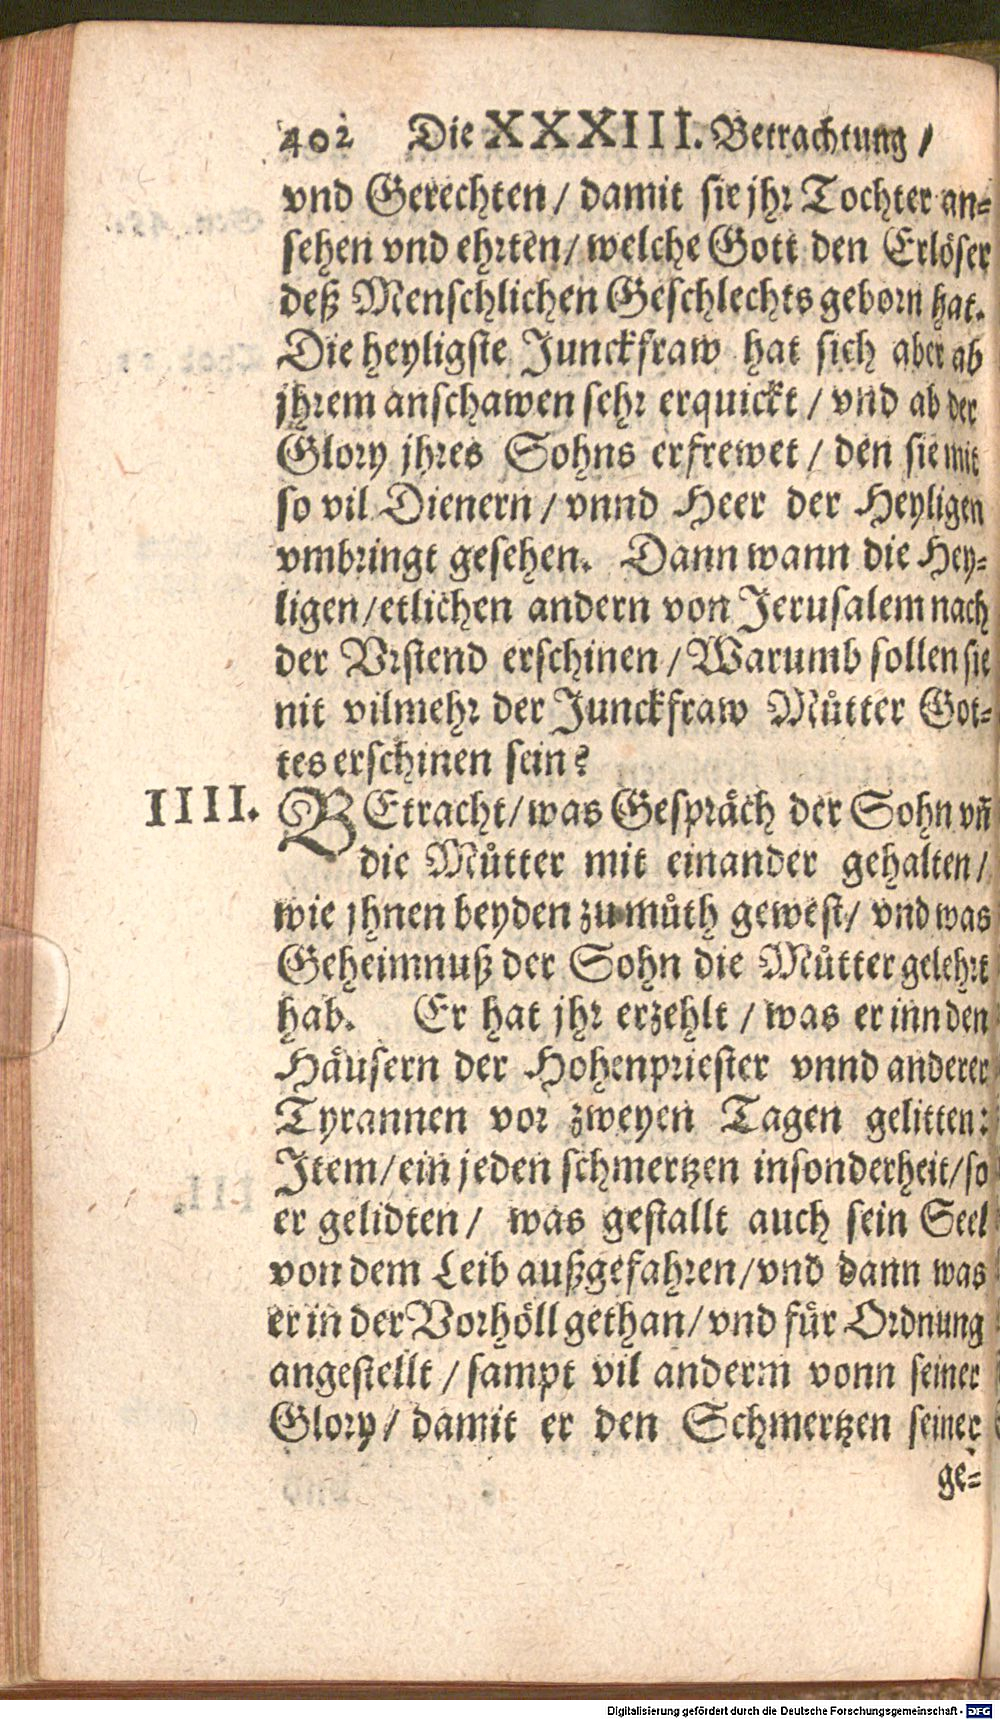 402 Die XXXIII. Betrachtung /
vnd Gerechten / damit sie jhr Tochter an=
sehen vnd ehrten / welche Gott den Erlöser
deß Menschlichen Geschlechts geborn hat.
Die heyligste Junckfraw hat sich aber ab
jhrem anschawen sehr erquickt / vnd ab der
Glory jhres Sohns erfrewet / den sie mit
so vil Dienern / vnnd Heer der Heyligen
vmbringt gesehen. Dann wann die Hey=
ligen / etlichen andern von Jerusalem nach
der Vrstend erschinen / Warumb sollen sie
nit vilmehr der Junckfraw Muͤtter Got=
tes erschinen sein?
IIII. BEtracht / was Gespräch der Sohn vñ
die Muͤtter mit einander gehalten /
wie jhnen beyden zu muͦth gewest / vnd was
Geheimnuß der Sohn die Muͤtter gelehrt
hab. Er hat jhr erzehlt / was er inn den
Häusern der Hohenpriester vnnd anderer
Tyrannen vor zweyen Tagen gelitten:
Item / ein jeden schmertzen insonderheit / so
er gelidten / was gestallt auch sein Seel
von dem Leib außgefahren / vnd dann was
er in der Vorhöll gethan / vnd für Ordnung
angestellt / sampt vil anderm vonn seiner
Glory / damit er den Schmertzen seiner
ge=
Digitalisierung gefördert durch die Deutsche Forschungsgemeinschaft - DFG